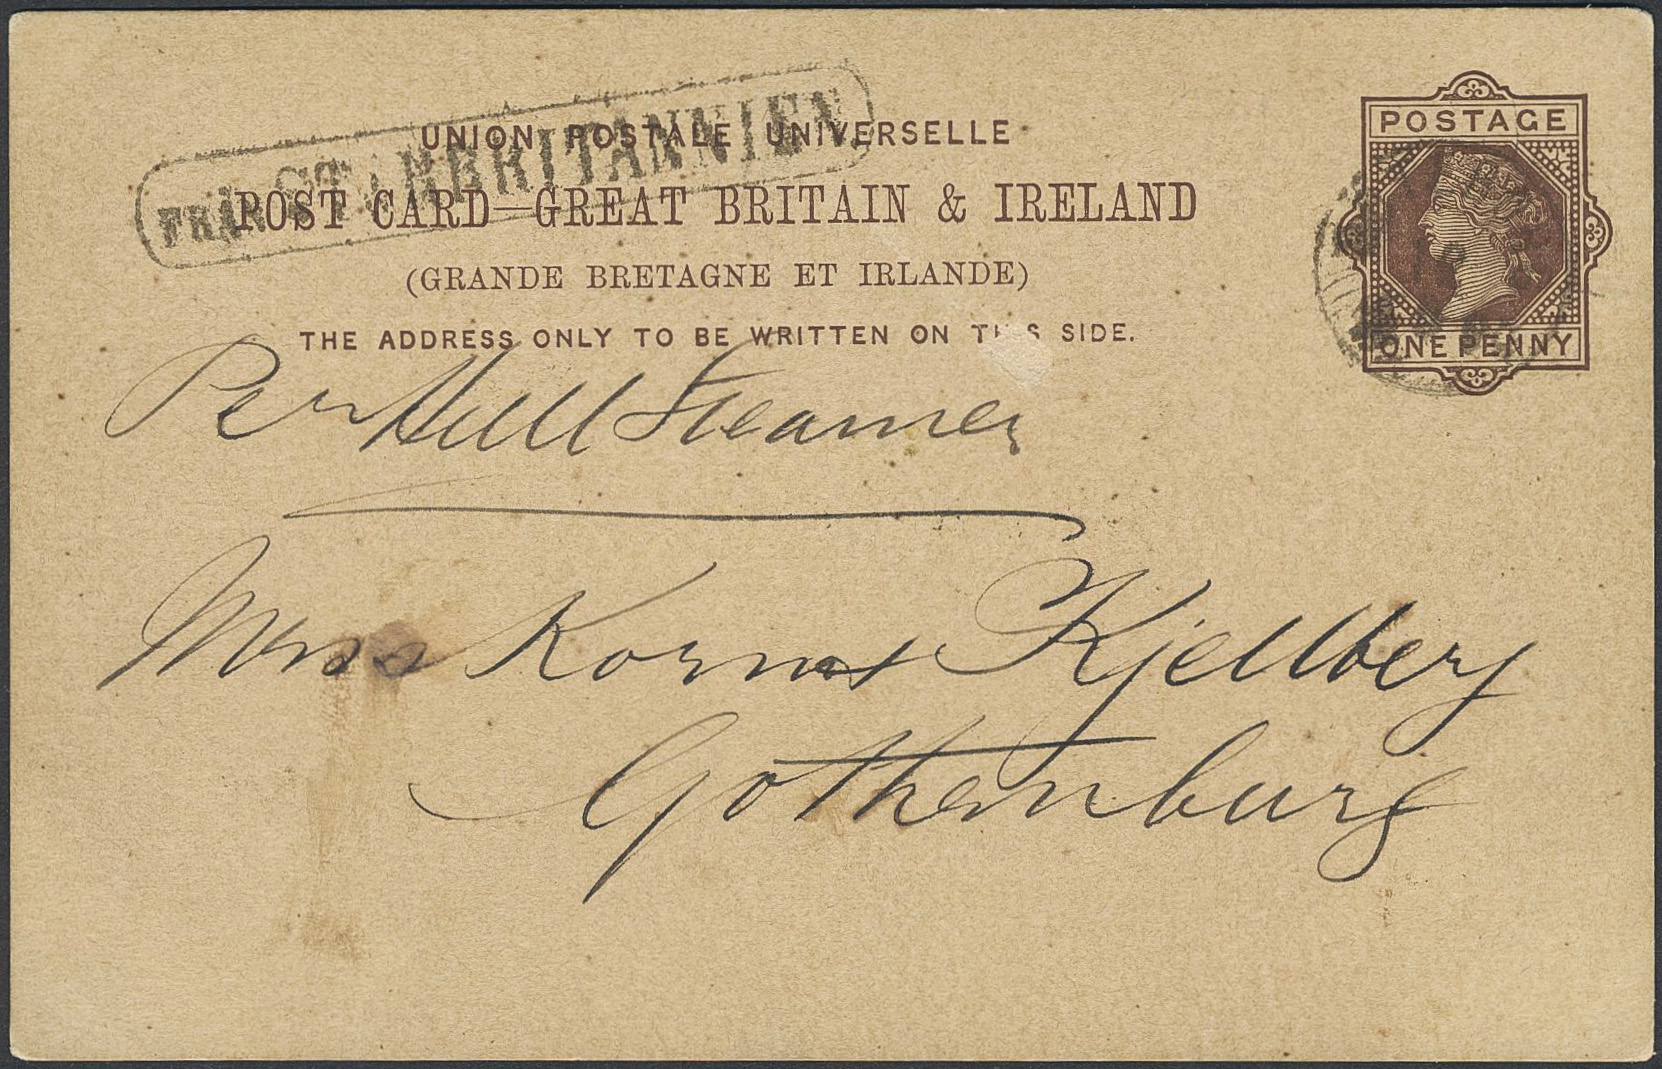 UNION POSTALE UNIVERSELLE
POST CARD—GREAT BRITAIN & IRELAND
(GRANDE BRETAGNE ET IRLANDE)
THE ADDRESS ONLY TO BE WRITTEN ON THIS SIDE.
FRÅN STORBRITANNIEN
POSTAGE
ONE PENNY
Per Hull Steamer
Kjellberg
Gothenburg